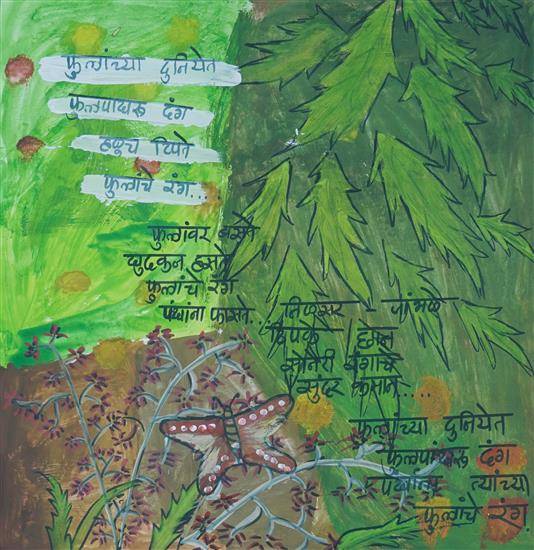 फुलांच्या दुनियेत
फुलपाखरू दंग
हळूच टिपते
फुलांचे रंग...
फुलांवर बसते
खुदकन हसते
फुलांचे रंग
पंखांना फासते
निळसर - जांभळे
ठिपके
सोनेरी रंगाचे
सुंदर
फुलांच्या दुनियेत
फुलपाखरू दंग
त्यांच्या
फुलांचे रंग.